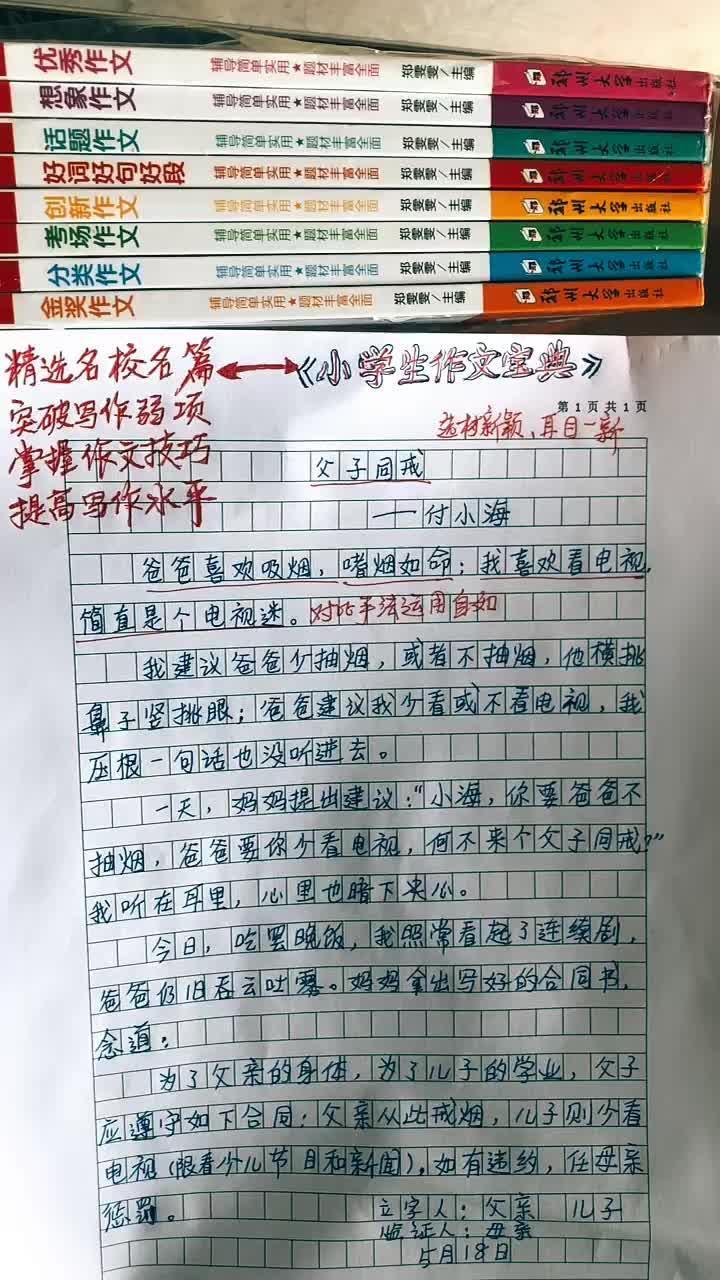 优秀作文 辅导简单实用★题材丰富全面 郑雯雯/主编 郑州大学出版社
想象作文 辅导简单实用★题材丰富全面 郑雯雯/主编 郑州大学出版社
话题作文 辅导简单实用★题材丰富全面 郑雯雯/主编 郑州大学出版社
好词好句好段 辅导简单实用★题材丰富全面 郑雯雯/主编 郑州大学出版社
创新作文 辅导简单实用★题材丰富全面 郑雯雯/主编 郑州大学出版社
考场作文 辅导简单实用★题材丰富全面 郑雯雯/主编 郑州大学出版社
分类作文 辅导简单实用★题材丰富全面 郑雯雯/主编 郑州大学出版社
金奖作文 辅导简单实用★题材丰富全面 郑雯雯/主编 郑州大学出版社
精选名校名篇 《小学生作文宝典》
突破写作弱项
掌握作文技巧
提高写作水平
第1页 共1页
选材新颖、耳目一新
父子同戒
——付小海
爸爸喜欢吸烟，嗜烟如命；我喜欢看电视，
简直是个电视迷。 对比手法运用自如
我建议爸爸少抽烟，或者不抽烟，他横挑
鼻子竖挑眼；爸爸建议我少看或不看电视，我
压根一句话也没听进去。
一天，妈妈提出建议：“小海，你要爸爸不
抽烟，爸爸要你少看电视，何不来个父子同戒？”
我听在耳里，心里也暗下决心。
今日，吃罢晚饭，我照常看起了连续剧，
爸爸仍旧吞云吐雾。妈妈拿出写好的合同书，
念道：
为了父亲的身体，为了儿子的学业，父子
应遵守如下合同：父亲从此戒烟，儿子则少看
电视（限看少儿节目和新闻），如有违约，任母亲
惩罚。
立字人：父亲 儿子
监证人：母亲
5月18日